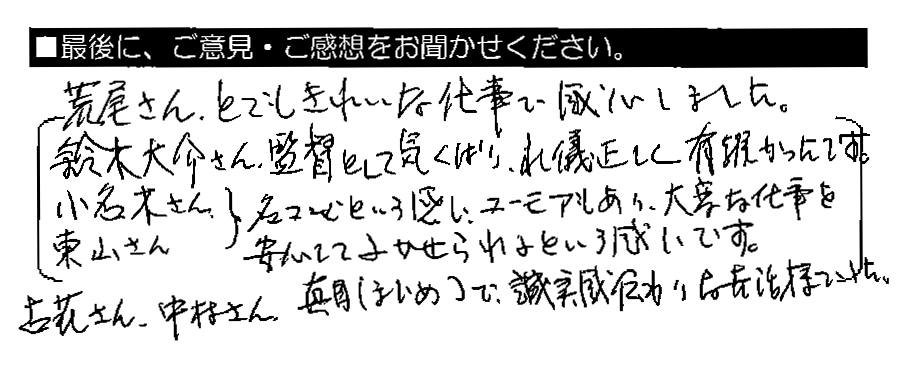 ■最後に、ご意見・ご感想をお聞かせください。
荒尾さん、とてもきれいな仕事で感心しました。
鈴木大介さん、監督として気くばり、礼儀正しく有難かったです。
小名木さん、東山さん } 名コンビという感じ、ユーモアもあり、大変な仕事を
安心してまかせられるという感じです。
古萩さん、中村さん、真目(まじめ)で、誠実感伝わり